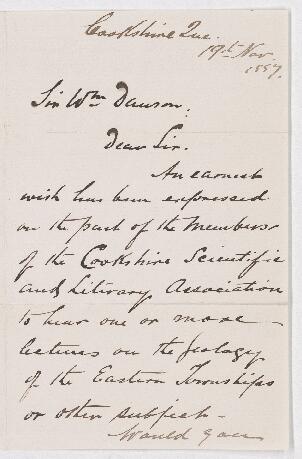 Cookshire Que.
19th Nov.
1887.
Sir Wm Dawson.
Dear Sir.
An earnest
wish has been expressed
on the part of the Members
of the Cookshire Scientific
and Literary Association
to hear one or more
lectures on the geology
of the Eastern Townships
or other subject -
Would you